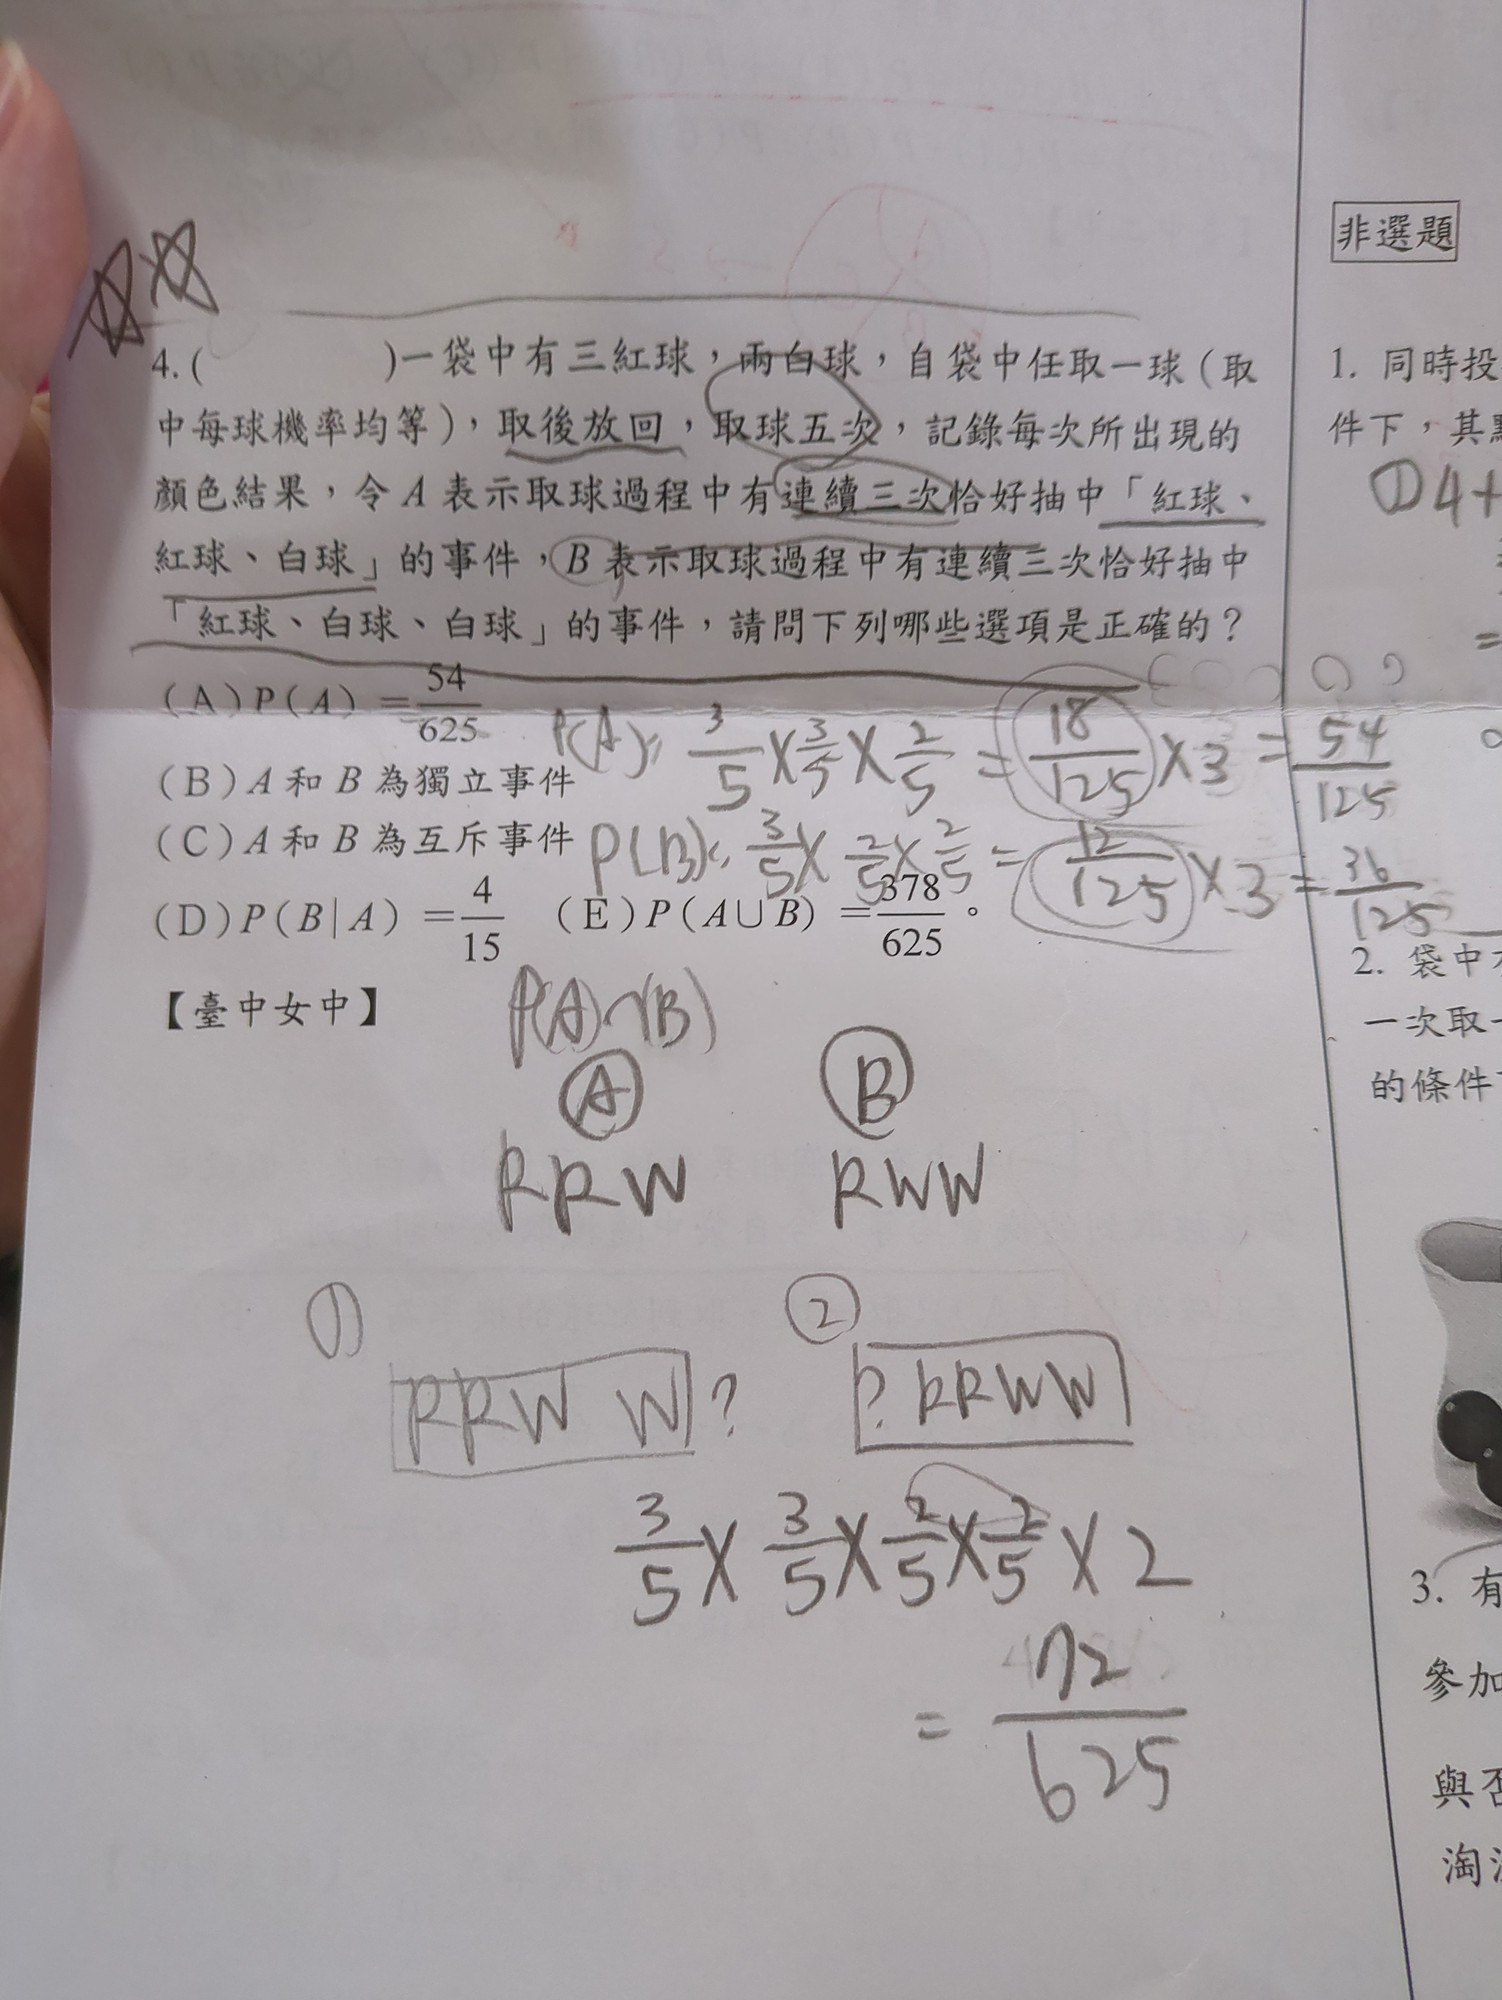 非選題
4.( )一袋中有三紅球，兩白球，自袋中任取一球(取
中每球機率均等)，取後放回，取球五次，記錄每次所出現的
顏色結果，令A表示取球過程中有連續三次恰好抽中「紅球、
紅球、白球」的事件，B表示取球過程中有連續三次恰好抽中
「紅球、白球、白球」的事件，請問下列哪些選項是正確的？
(A)P(A)=54/625
P(A): 3/5×3/5×2/5=18/125×3=54/125
(B)A和B為獨立事件
(C)A和B為互斥事件
P(B): 3/5×2/5×2/5=12/125×3=36/125
(D)P(B|A)=4/15 (E)P(A∪B)=378/625。
【臺中女中】
P(A)∩(B)
A B
RRW RWW
① ②
RRW W ? ? RRWW
3/5×3/5×2/5×2/5×2
=72/625
1. 同時投
件下，其
①4+
=
2. 袋中
一次取一
的條件
3. 有
參加
與否
淘